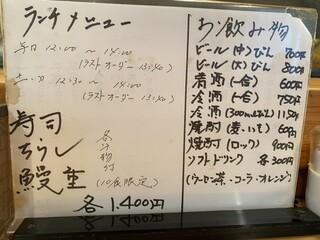 ランチメニュー
平日 12:00 ～ 14:00
(ラストオーダー 13:40)
土・日 12:30 ～ 14:00
(ラストオーダー 13:40)
寿司
ちらし
鰻重
各
汁物付
(10食限定)
各 1,400円
お飲み物
ビール(中)びん 700円
ビール(大)びん 800円
清酒(一合) 600円
冷酒(一合) 750円
冷酒(300ml)  1,150円
焼酎(麦・いも) 600円
焼酎(ロック) 900円
ソフトドリンク 各300円
(ウーロン茶・コーラ・オレンジ)